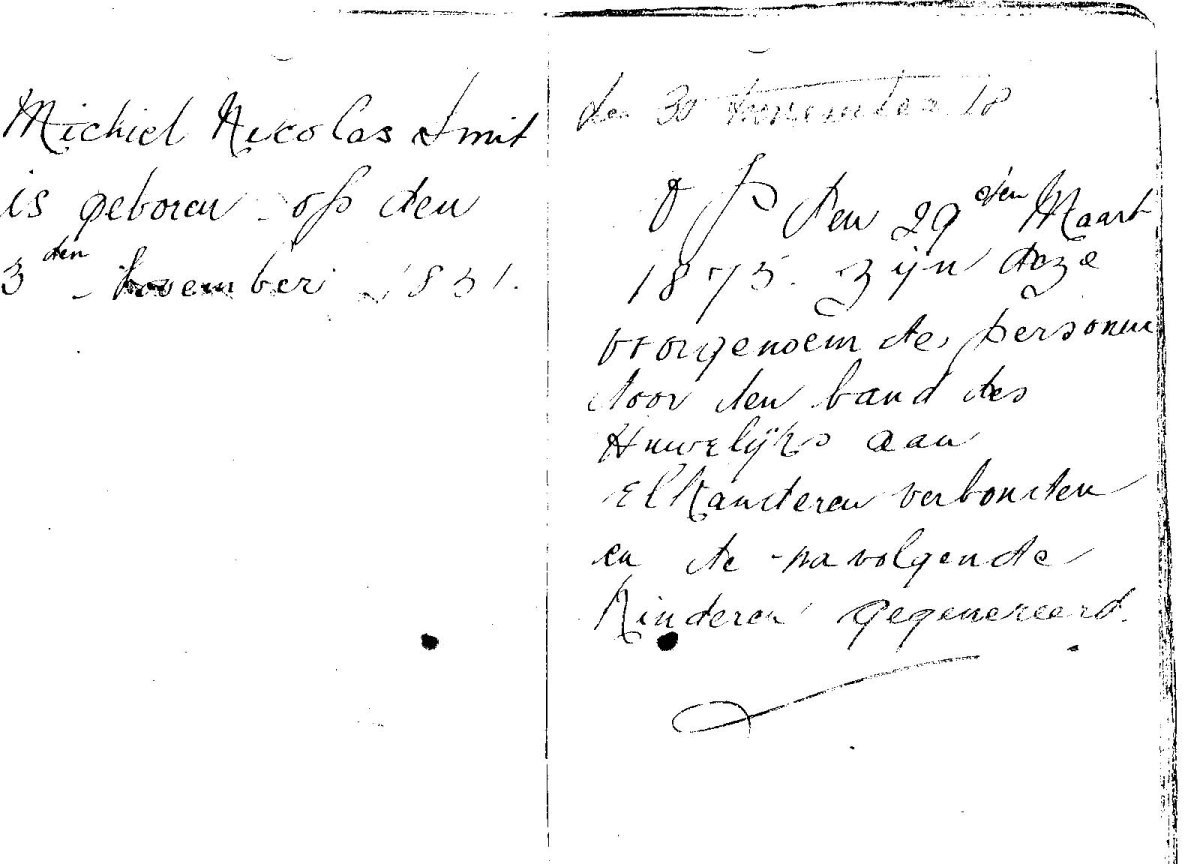 Michiel Nicolas Smit
is geboren op den
3 den November 1831.
den 30 November 18
Op den 29 sten Maart
1875. zijn deze
voorgenoemde personen
door den band des
Huwelijks aan
Elkanderen verbonden
en de navolgende
Kinderen gegenereerd.